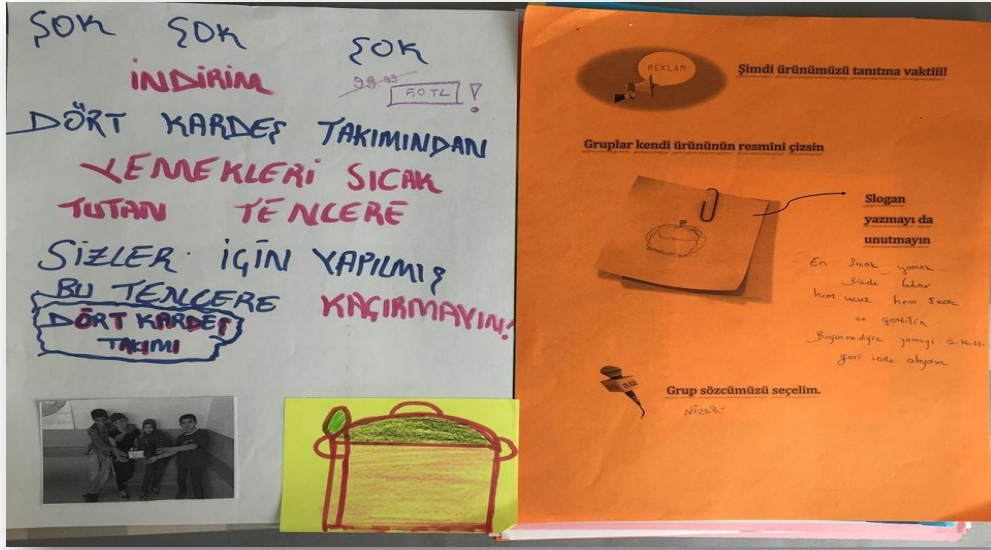 ŞOK ŞOK ŞOK
İNDİRİM
99.99
50 TL !
DÖRT KARDEŞ TAKIMINDAN
YEMEKLERİ SICAK
TUTAN TENCERE
SİZLER İÇİN YAPILMIŞ
BU TENCERE
KAÇIRMAYIN!
DÖRT KARDEŞ
TAKIMI
REKLAM
Şimdi ürünümüzü tanıtma vaktiii!
Gruplar kendi ürününün resmini çizsin
Slogan
yazmayı da
unutmayın
En Sıcak yemek
Bizde
hem ucuz hem Sıcak
ve
yemeği 2. katı
geri iade
Grup sözcümüzü seçelim.